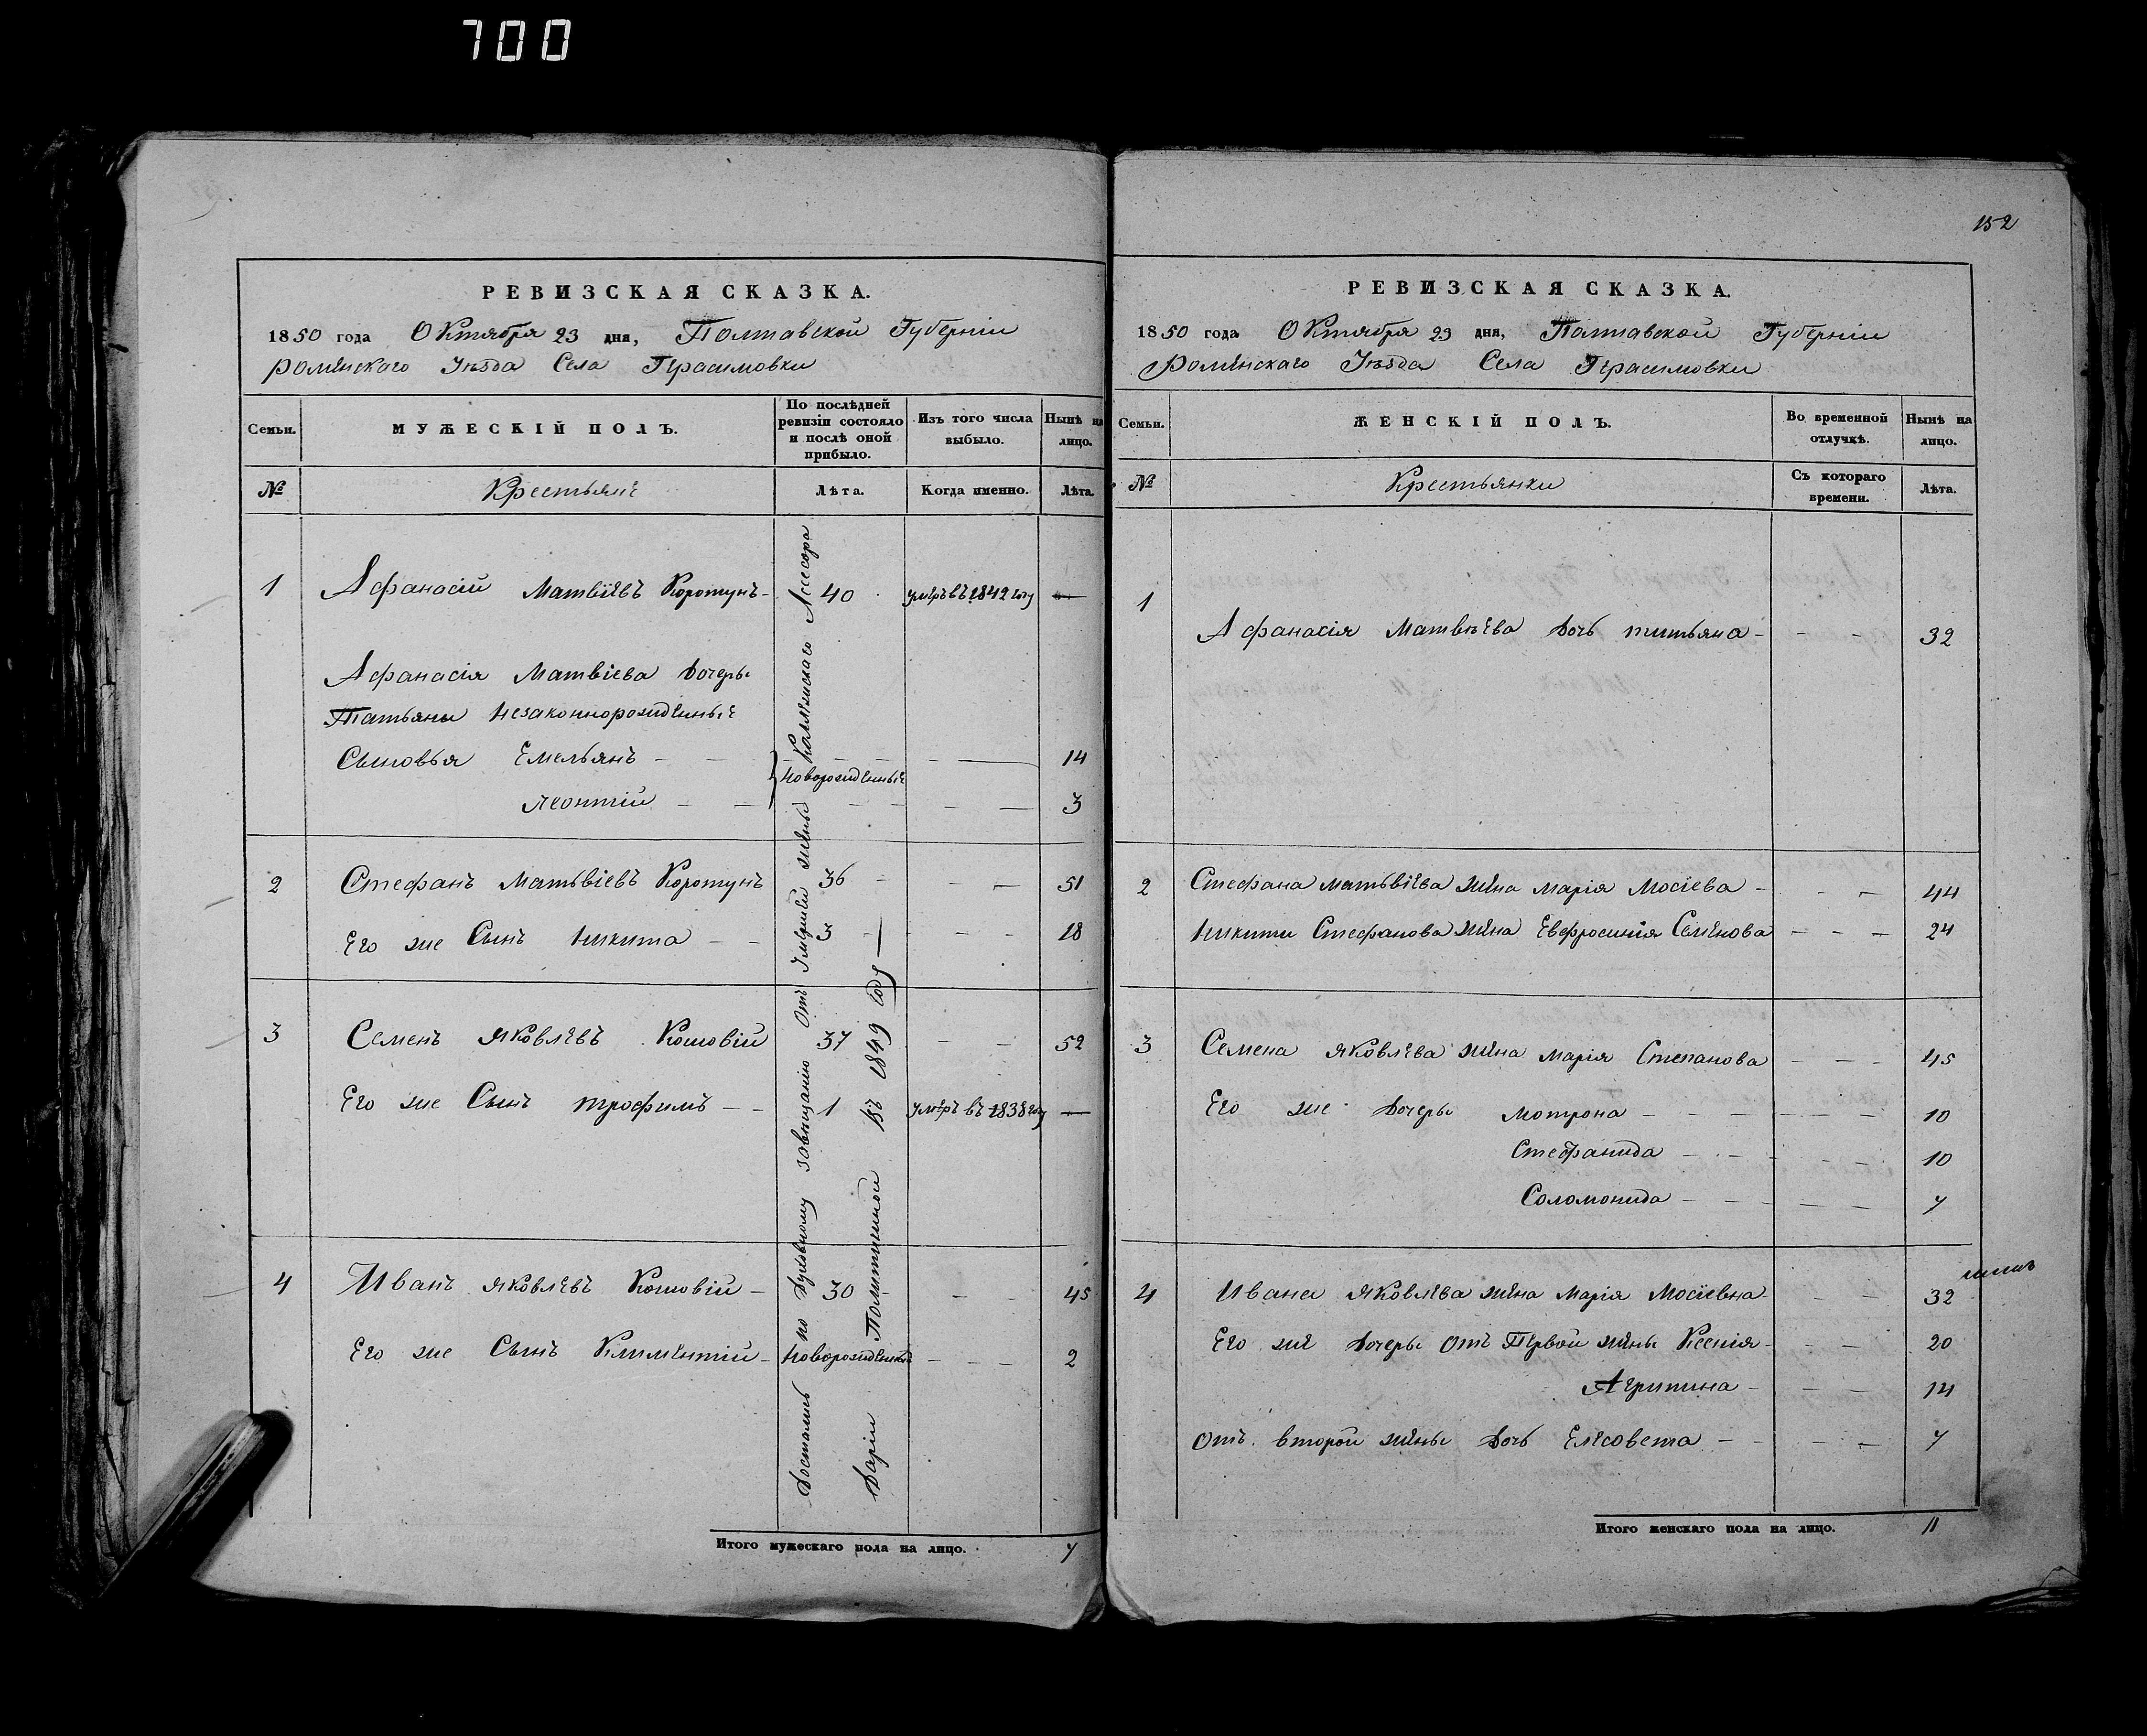 700
РЕВИЗСКАЯ СКАЗКА.
1850 года Октября 23 дня, Полтавской Губерніи
Роменскаго Уѣзда Села Герасимовки
Семьи.
МУЖЕСКІЙ ПОЛЪ.
По послѣдней ревизіи состояло и послѣ оной прибыло.
Изъ того числа выбыло.
Нынѣ на лицо.
№
Крестьяне
Лѣта.
Когда именно.
Лѣта.
1 Афанасій Матвіевъ Коротунъ 40 умеръ въ 1842 году —
Афанасія Матвіева дочери
Татьяны незаконнорожденные
Сыновья Емельянъ — 14
новорожденные
Леонтій — 3
2 Стефанъ Матьвіевъ Коротунъ 36 — 51
Его же Сынъ Никита — 3 — 18
3 Семенъ Яковлевъ Кошовій 37 — 52
Его же Сынъ Трофимъ — 1 умеръ въ 1838 году —
4 Иванъ Яковлевъ Кошовій — 30 — 45
Его же Сынъ Климентій — новорожденный — 2
Достались по духовному завещанію отъ умершей жены Коллежскаго Ассесора
Даріи Политикиной въ 1849 году —
Итого мужескаго пола на лицо. 7
152
РЕВИЗСКАЯ СКАЗКА.
1850 года Октября 23 дня, Полтавской Губерніи
Роменскаго Уѣзда Села Герасимовки
Семьи.
ЖЕНСКІЙ ПОЛЪ.
Во временной отлучкѣ.
Нынѣ на лицо.
№
Крестьянки
Съ котораго времени.
Лѣта.
1 Афанасія Матвѣева дочь Титьяна — 32
2 Стефана Матьвіева жена Марія Мосіева — 44
Никити Стефанова жена Евфросинія Семенова — 24
3 Семена Яковлева жена Марія Степанова — 45
Его же дочери Мотрона — 10
Стефанида — 10
Соломонида — 7
4 Ивана Яковлева жена Марія Мосіевна — 32
Его же дочери отъ Первой жены Ксенія — 20
Агрипина — 14
отъ второй жены дочь Елісовета — 7
Итого женскаго пола на лицо. 11